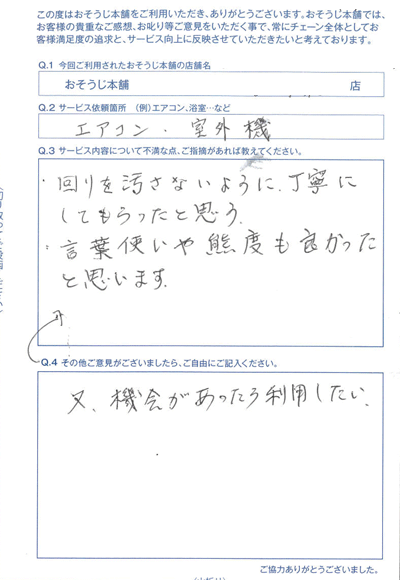 この度はおそうじ本舗をご利用いただき、ありがとうございます。おそうじ本舗では、
お客様の貴重なご感想、お叱り等ご意見をいただく事で、常にチェーン全体としてお
客様満足度の追求と、サービス向上に反映させていただきたいと考えております。
Q.1 今回ご利用されたおそうじ本舗の店舗名
おそうじ本舗 店
Q.2 サービス依頼箇所 (例)エアコン、浴室…など
エアコン・室外機
Q.3 サービス内容について不満な点、ご指摘があれば教えてください。
・回りを汚さないように、丁寧に
してもらったと思う。
・言葉使いや態度も良かった
と思います。
Q.4 その他ご意見がございましたら、ご自由にご記入ください。
又、機会があったら利用したい。
ご協力ありがとうございました。